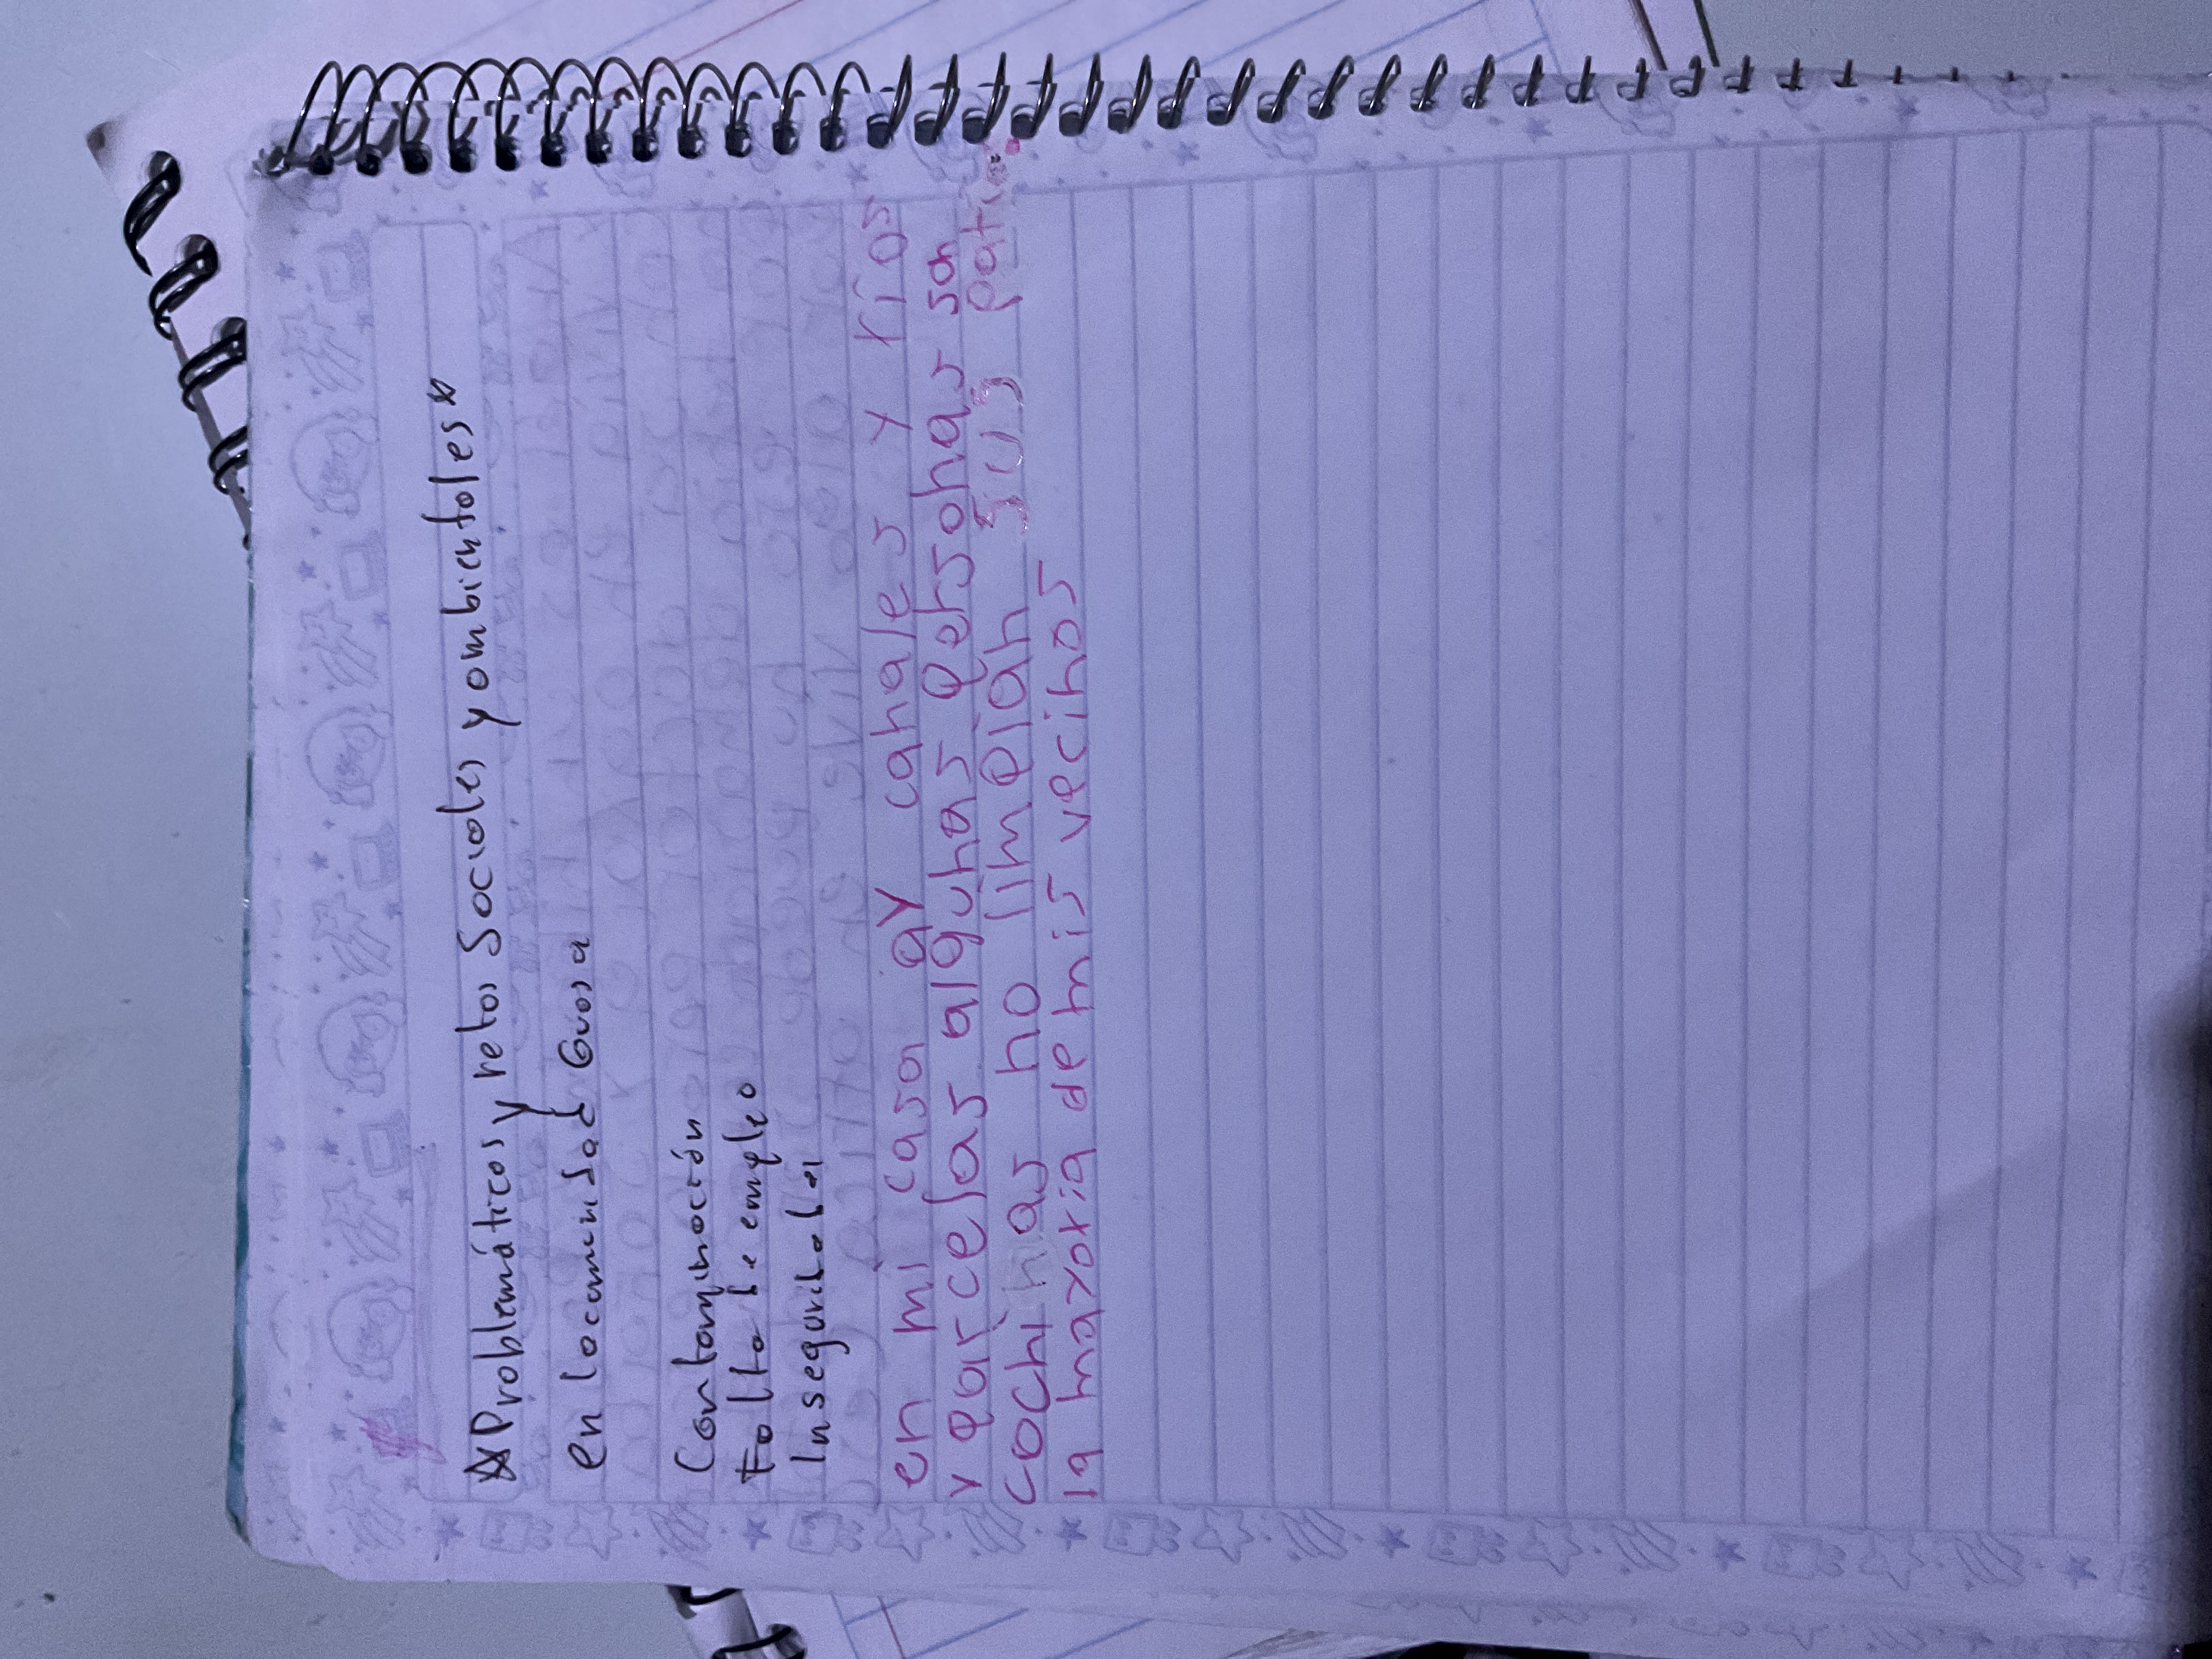 ☆Problemáticas y retos Sociales y ambientales☆
en la comunidad Guasa
Contaminación
Falta de empleo
Inseguridad
en mi casa ay canales y rios
y parcelas algunas personas son
cochinas no limpian sus patio
la mayoria de mis vecinos